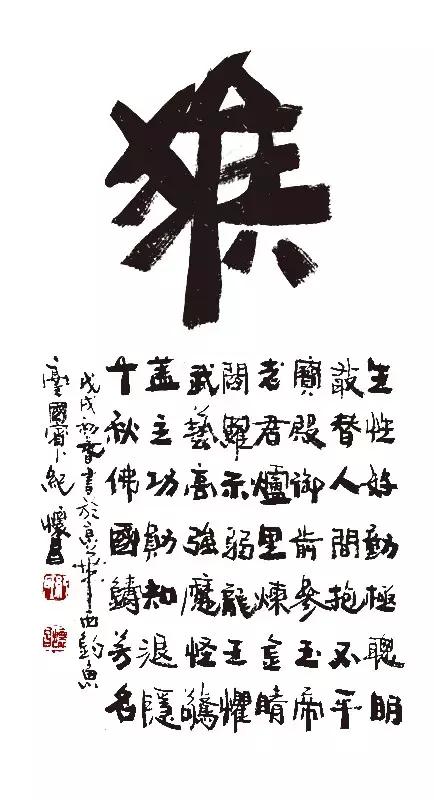 猴
生性好動極聰明
敢替人間抱不平
寶殿御前參玉帝
老君爐里煉金睛
閻羅示弱龍王懼
武藝高強魔怪驚
蓋主功勛知退隱
千秋佛國鑄芳名
戊戌初春書於京華西釣魚
臺國賓 紀懷昌